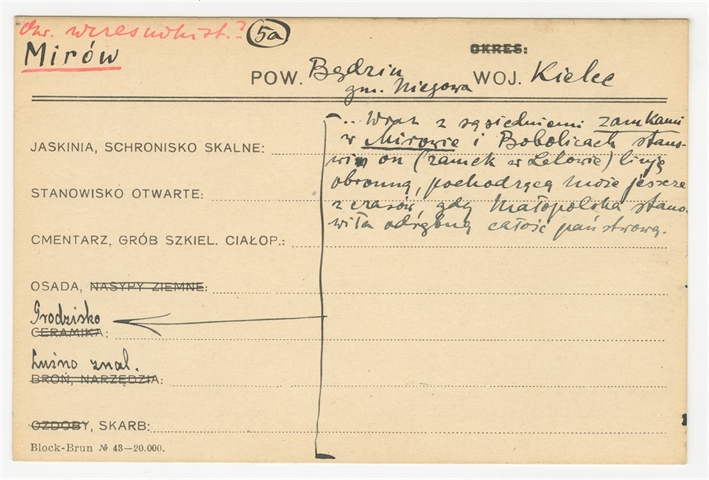 Okr. wczesnohist.? 5a
Mirów
OKRES:
POW. Będzin WOJ. Kielce
gm. Niegowa
.. Wraz z sąsiedniemi zamkami
w Mirowie i Bobolicach stano-
wi on (zamek w Lelowie) linję
obronną, pochodzącą może jeszcze
z czasów, gdy Małopolska stano-
wiła odrębną całość państwową.
JASKINIA, SCHRONISKO SKALNE:
STANOWISKO OTWARTE:
CMENTARZ, GRÓB SZKIEL. CIAŁOP.:
OSADA, NASYPY ZIEMNE:
Grodzisko
CERAMIKA:
Luźno znal.
BROŃ, NARZĘDZIA:
OZDOBY, SKARB:
Block-Brun № 43—20.000.